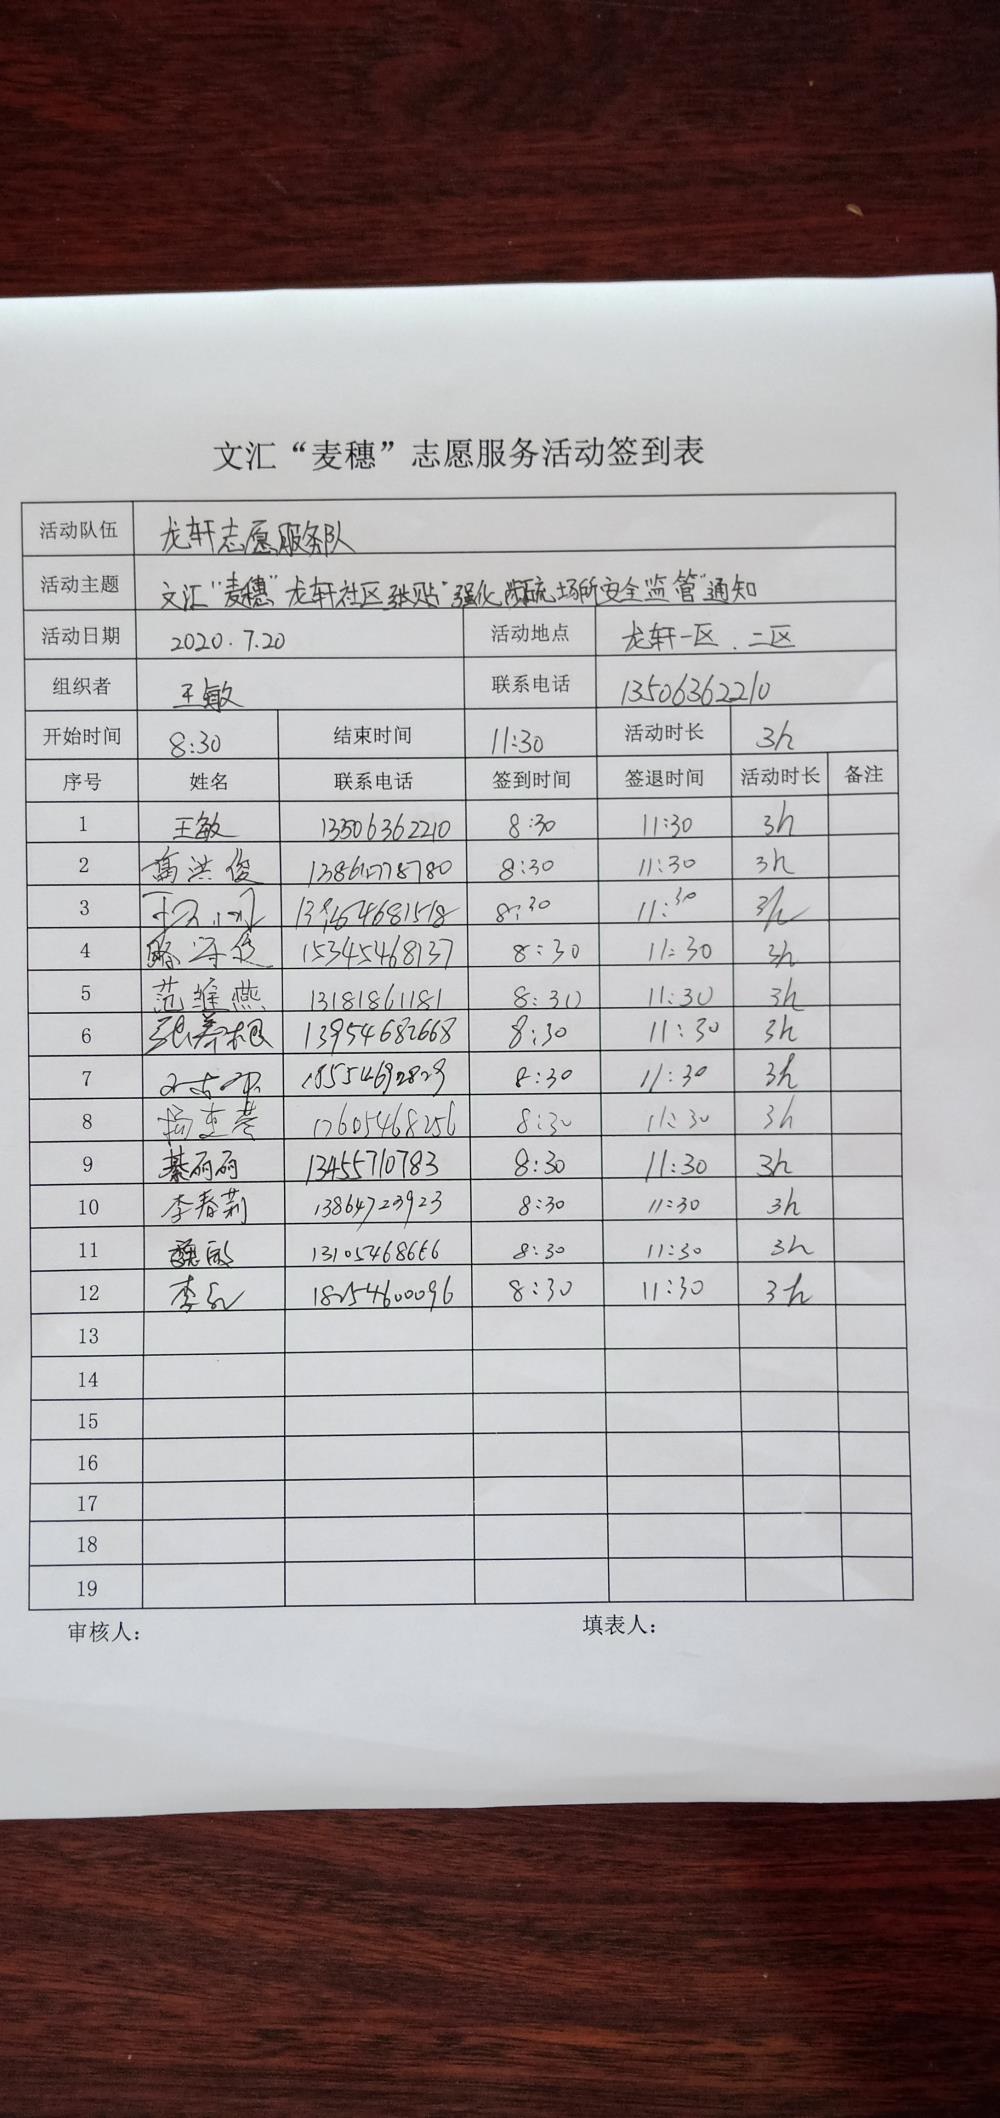 文汇“麦穗”志愿服务活动签到表
活动队伍 龙轩志愿服务队
活动主题 文汇“麦穗”龙轩社区张贴“强化 场所安全监管”通知
活动日期 2020.7.20 活动地点 龙轩一区.二区
组织者 王敏 联系电话 13506362210
开始时间 8:30 结束时间 11:30 活动时长 3h
序号 姓名 联系电话 签到时间 签退时间 活动时长 备注
1 王敏 13506362210 8:30 11:30 3h
2 高洪俊 8:30 11:30 3h
3 8:30 11:30 3h
4 15345468137 8:30 11:30 3h
5 范维燕 13181861181 8:30 11:30 3h
6 13954682668 8:30 11:30 3h
7 8:30 11:30 3h
8 17605468256 8:30 11:30 3h
9 綦丽丽 13455710783 8:30 11:30 3h
10 李春莉 13864723923 8:30 11:30 3h
11 8:30 11:30 3h
12 18254600096 8:30 11:30 3h
13
14
15
16
17
18
19
审核人: 填表人: